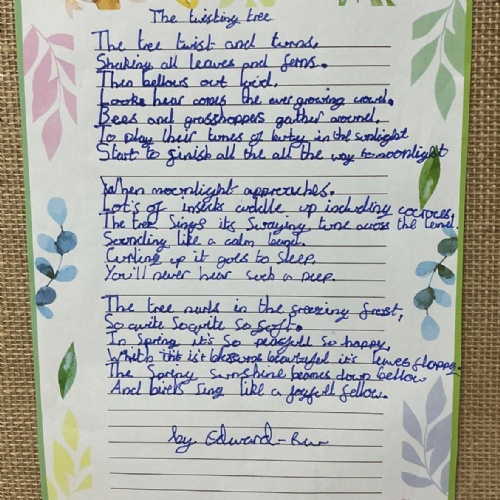 The twisting tree
The tree twist and turns,
Shaking all leaves and ferns.
Then bellows out loid,
Looks hear comes the ever growing crowd.
Bees and grasshoppers gather around,
To play their tunes of in the sunlight
Start to finish all the all the way to moonlight
When moonlight approaches.
Lot's of insects cuddle up including cocroces,
The tree sings its swaying tune across the land.
Sounding like a calm band.
Curling up it goes to sleep.
You'll never hear such a peep.
The tree in the freezing frost,
So so soft.
In Spring it's so peacfull so happy,
it's beautiful it's leaves
The Spring sunshine beames down bellow
And birds sing like a joyfull fellow.
by Edward-